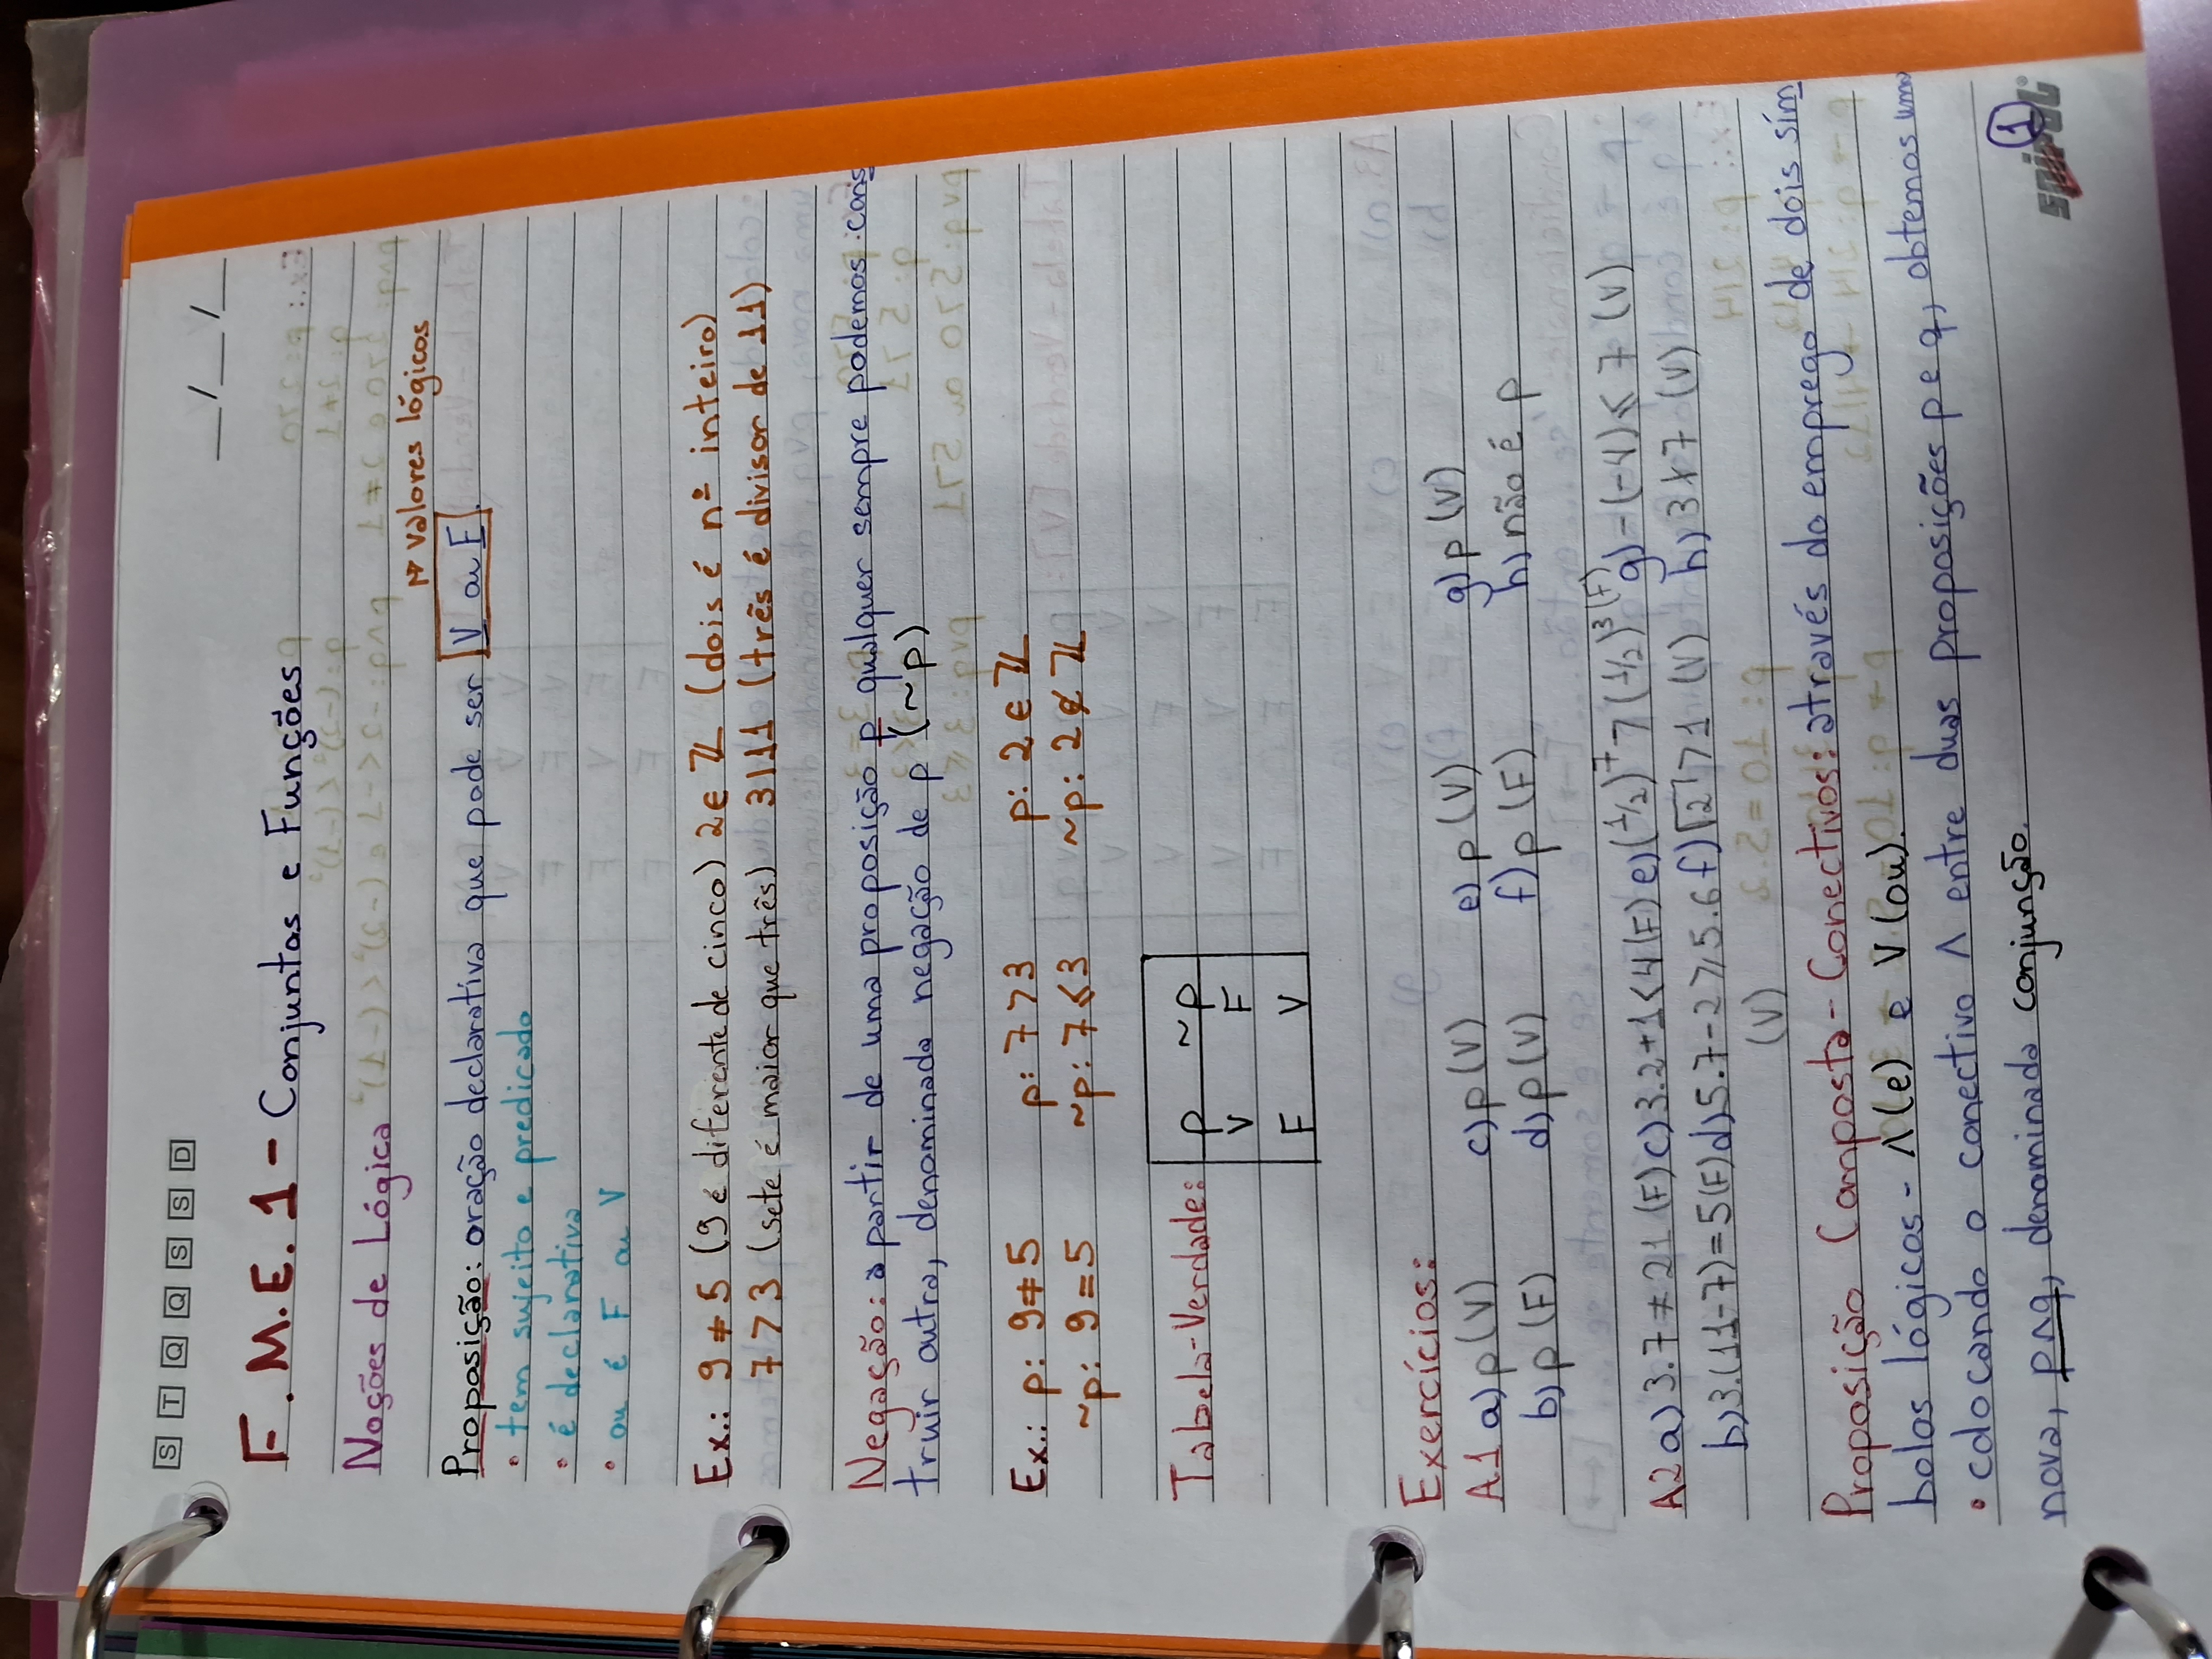 S T Q Q S S D
__/__/__
F.M.E.1 - Conjuntos e Funções
Noções de Lógica
↱ valores lógicos
Proposição: oração declarativa que pode ser V ou F.
• tem sujeito e predicado
• é declarativa
• ou é F ou V
Ex.: 9 ≠ 5 (9 é diferente de cinco) 2 ∈ ℤ (dois é nº inteiro)
7 > 3 (sete é maior que três) 3|11 (três é divisor de 11)
Negação: a partir de uma proposição p qualquer sempre podemos cons
truir outra, denominada negação de p (~p)
Ex.: p: 9 ≠ 5 p: 7 > 3 p: 2 ∈ ℤ
~p: 9 = 5 ~p: 7 ≤ 3 ~p: 2 ∉ ℤ
Tabela-Verdade: p ~p
V F
F V
Exercícios:
A1 a) p (V) c) p (V) e) p (V) g) p (V)
b) p (F) d) p (V) f) p (F) h) não é p
A2 a) 3.7 ≠ 21 (F) c) 3.2+1 < 4 (F) e) (1/2)⁷ > (1/2)³ (F) g) -(-4) ≤ 7 (V)
b) 3.(11-7) = 5 (F) d) 5.7-2 ≥ 5.6 f) √2 > 1 (V) h) 3∤7 (V)
(V)
Proposição Composta - Conectivos: através do emprego de dois sím
bolos lógicos - Λ (e) e V (ou).
• colocando o conectivo Λ entre duas proposições p e q, obtemos uma
nova, pΛq, denominada conjunção.
1
spiral